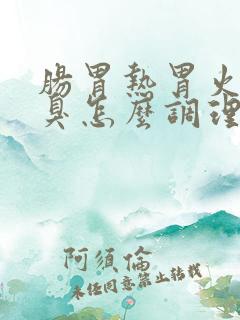 腸胃熱胃火
臭怎麼調理
阿須倫
未经同意禁止转载